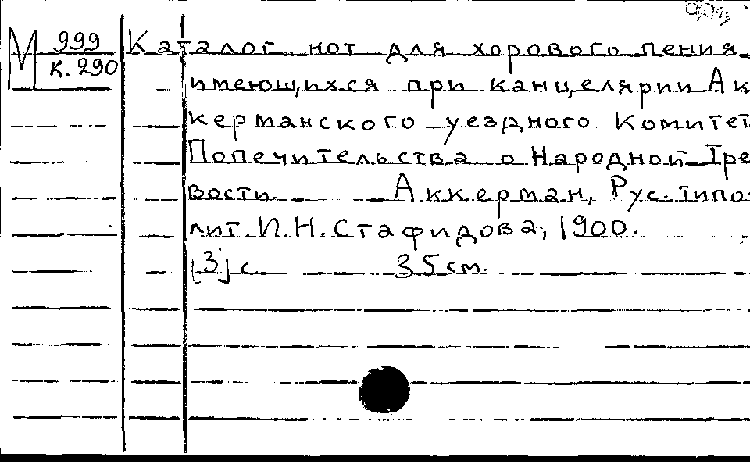 М 999
К. 290
Каталог нот для хорового пения
имеющихся при канцелярии Ак
керманского уездного Комитет
Попечительства о Народной Тре
вости Аккерман, Рус. типо-
лит. И.Н. Стафидова, 1900.
[3] с. 35 см.